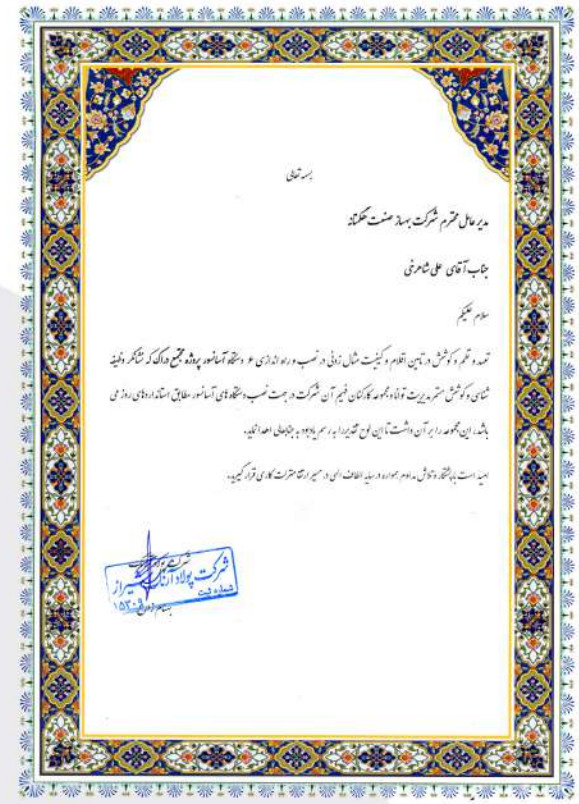 بسمه تعالی
مدیر عامل محترم شرکت بهساز صنعت هگمتانه
جناب آقای علی شاهرخی
سلام علیکم
تعهد و تحکم و کوشش در تامین اقلام و کیفیت مثال زدنی در نصب و راه اندازی ۶ دستگاه آسانسور پروژه مجتمع دراک که نشانگر وظیفه
شناسی و کوشش مستمر مدیریت توانا و مجموعه کارکنان فهیم آن شرکت در جهت نصب دستگاه های آسانسور مطابق استانداردهای روز می
باشد، این مجموعه را بر آن داشت تا این لوح تقدیر را به رسم یادبود به جنابعالی اهدا نماید.
امید است با پشتکار و تلاش مداوم همواره در سایه الطاف الهی در مسیر ارتقا مقرات کاری قرار گیرید.
شرکت پولاد آرنگ شیراز
شماره ثبت